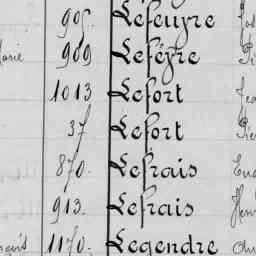 905. Lefeuvre
909 Lefèvre
1013 Lefort
37 Lefort
870. Lefrais
913. Lefrais
1170. Legendre